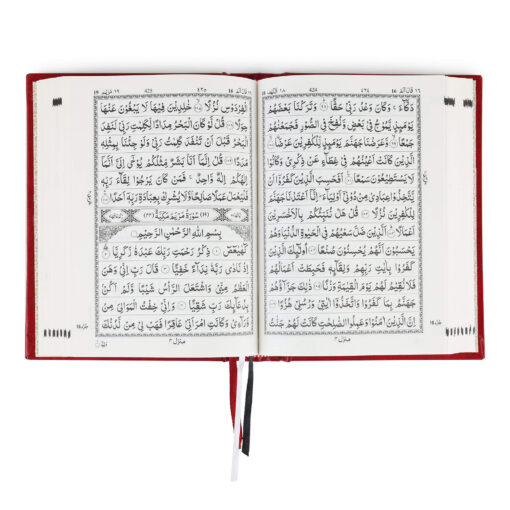 قال الم ١٦ ٤٢٤ الكهف ١٨
دَكَّآءَ ۚ وَكَانَ وَعْدُ رَبِّيْ حَقًّا ۝ وَتَرَكْنَا بَعْضَهُمْ
يَوْمَئِذٍ يَّمُوْجُ فِيْ بَعْضٍ وَّنُفِخَ فِي الصُّوْرِ فَجَمَعْنٰهُمْ
جَمْعًا ۝ وَّعَرَضْنَا جَهَنَّمَ يَوْمَئِذٍ لِّلْكٰفِرِيْنَ عَرْضًا ۝
الَّذِيْنَ كَانَتْ اَعْيُنُهُمْ فِيْ غِطَآءٍ عَنْ ذِكْرِيْ وَكَانُوْا
لَا يَسْتَطِيْعُوْنَ سَمْعًا ۝ اَفَحَسِبَ الَّذِيْنَ كَفَرُوْٓا اَنْ
يَّتَّخِذُوْا عِبَادِيْ مِنْ دُوْنِيْٓ اَوْلِيَآءَ ۚ اِنَّآ اَعْتَدْنَا جَهَنَّمَ
لِلْكٰفِرِيْنَ نُزُلًا ۝ قُلْ هَلْ نُنَبِّئُكُمْ بِالْاَخْسَرِيْنَ
اَعْمَالًا ۝ اَلَّذِيْنَ ضَلَّ سَعْيُهُمْ فِي الْحَيٰوةِ الدُّنْيَا وَهُمْ
يَحْسَبُوْنَ اَنَّهُمْ يُحْسِنُوْنَ صُنْعًا ۝ اُولٰٓئِكَ الَّذِيْنَ
كَفَرُوْا بِاٰيٰتِ رَبِّهِمْ وَلِقَآئِهٖ فَحَبِطَتْ اَعْمَالُهُمْ
فَلَا نُقِيْمُ لَهُمْ يَوْمَ الْقِيٰمَةِ وَزْنًا ۝ ذٰلِكَ جَزَآؤُهُمْ
جَهَنَّمُ بِمَا كَفَرُوْا وَاتَّخَذُوْٓا اٰيٰتِيْ وَرُسُلِيْ هُزُوًا ۝
اِنَّ الَّذِيْنَ اٰمَنُوْا وَعَمِلُوا الصّٰلِحٰتِ كَانَتْ لَهُمْ جَنّٰتُ
منزل ٤
قال الم ١٦ ٤٢٥ مريم ١٩
الْفِرْدَوْسِ نُزُلًا ۝ خٰلِدِيْنَ فِيْهَا لَا يَبْغُوْنَ عَنْهَا
حِوَلًا ۝ قُلْ لَّوْ كَانَ الْبَحْرُ مِدَادًا لِّكَلِمٰتِ رَبِّيْ لَنَفِدَ
الْبَحْرُ قَبْلَ اَنْ تَنْفَدَ كَلِمٰتُ رَبِّيْ وَلَوْ جِئْنَا بِمِثْلِهٖ
مَدَدًا ۝ قُلْ اِنَّمَآ اَنَا بَشَرٌ مِّثْلُكُمْ يُوْحٰٓى اِلَيَّ اَنَّمَآ
اِلٰهُكُمْ اِلٰهٌ وَّاحِدٌ ۚ فَمَنْ كَانَ يَرْجُوْا لِقَآءَ رَبِّهٖ
فَلْيَعْمَلْ عَمَلًا صَالِحًا وَّلَا يُشْرِكْ بِعِبَادَةِ رَبِّهٖٓ اَحَدًا ۝
(١٩) سُوْرَةُ مَرْيَمَ مَكِّيَّةٌ (٤٤)
بِسْمِ اللّٰهِ الرَّحْمٰنِ الرَّحِيْمِ
كٓهٰيٰعٓصٓ ۝ ذِكْرُ رَحْمَتِ رَبِّكَ عَبْدَهٗ زَكَرِيَّا ۝
اِذْ نَادٰى رَبَّهٗ نِدَآءً خَفِيًّا ۝ قَالَ رَبِّ اِنِّيْ وَهَنَ
الْعَظْمُ مِنِّيْ وَاشْتَعَلَ الرَّاْسُ شَيْبًا وَّلَمْ اَكُنْۢ
بِدُعَآئِكَ رَبِّ شَقِيًّا ۝ وَاِنِّيْ خِفْتُ الْمَوَالِيَ مِنْ
وَّرَآءِيْ وَكَانَتِ امْرَاَتِيْ عَاقِرًا فَهَبْ لِيْ مِنْ لَّدُنْكَ
منزل ٤